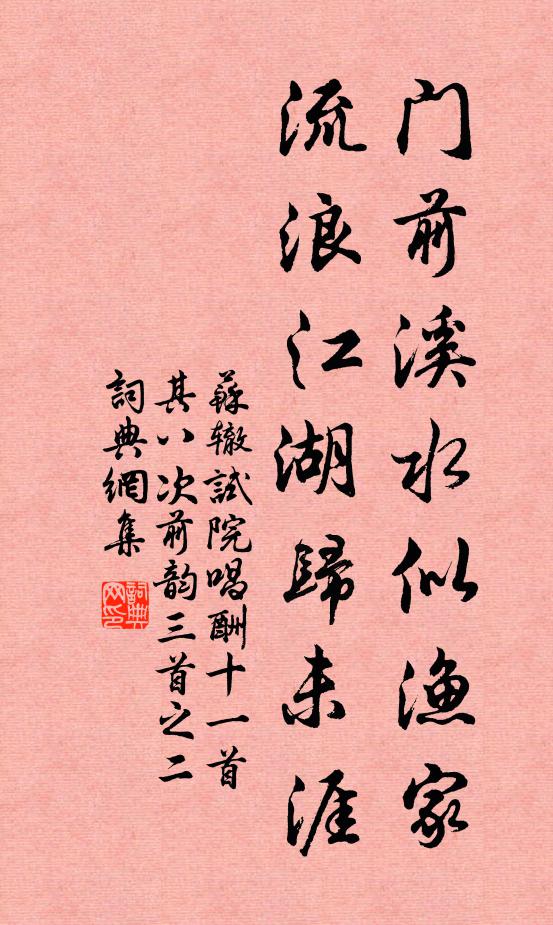 门前溪水似渔家
流浪江湖歸未涯
蘇辙試院唱酬十一首
其八次前韵三首之二
詞典網集
詞典網印